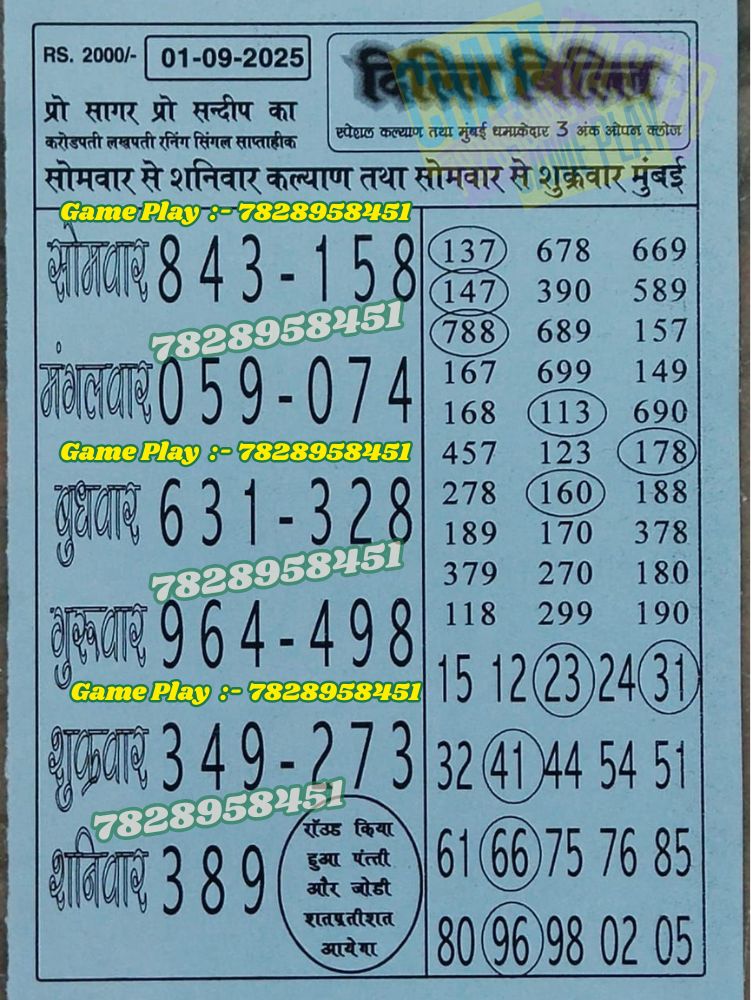 RS. 2000/-
01-09-2025
प्रो सागर प्रो सन्दीप का
करोडपती लखपती रनिंग सिंगल साप्ताहीक
स्पेशल कल्याण तथा मुंबई धमाकेदार 3 अंक ओपन क्लोज
सोमवार से शनिवार कल्याण तथा सोमवार से शुक्रवार मुंबई
Game Play :- 7828958451
सोमवार 843-158
7828958451
मंगलवार 059-074
Game Play :- 7828958451
बुधवार 631-328
7828958451
गुरूवार 964-498
Game Play :- 7828958451
शुक्रवार 349-273
7828958451
शनिवार 389
रॉउंड किया
हुआ पंत्ती
और जोडी
शतप्रतीशत
आयेगा
137 678 669
147 390 589
788 689 157
167 699 149
168 113 690
457 123 178
278 160 188
189 170 378
379 270 180
118 299 190
15 12 23 24 31
32 41 44 54 51
61 66 75 76 85
80 96 98 02 05